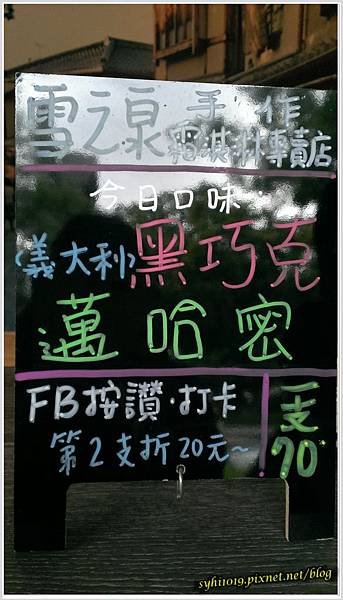 雪之泉 手作
霜淇淋專賣店
今日口味:
(義大利)黑巧克
邁哈密
FB按讚·打卡
第2支折20元~
一支
70
syhi1019.pixnet.net/blog